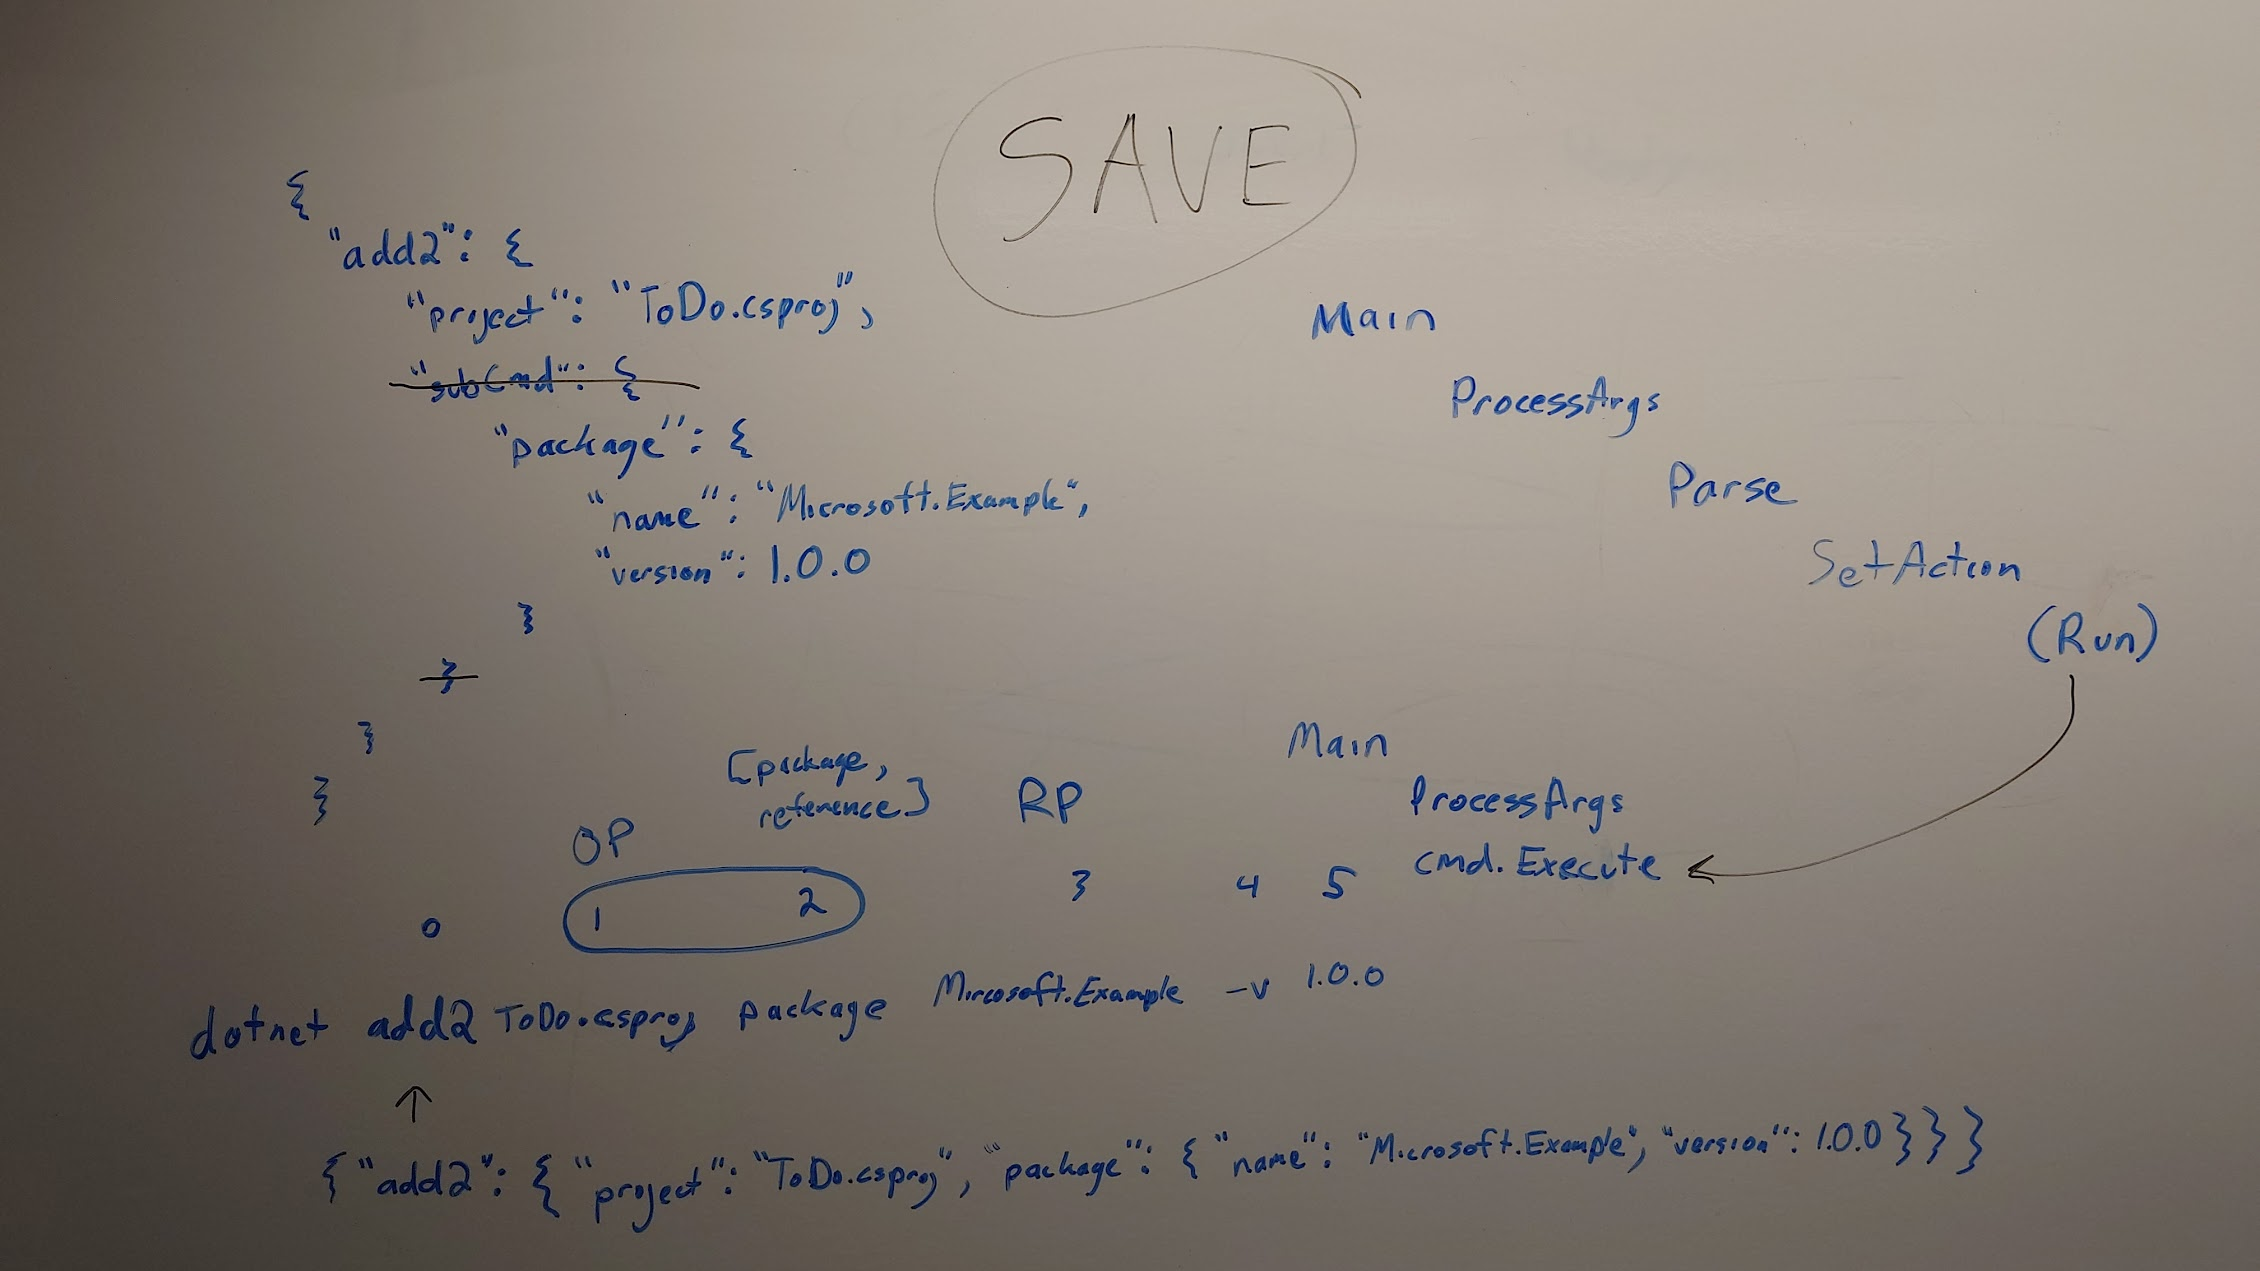 SAVE
{
"add2": {
"project": "ToDo.csproj",
"subCmd": {
"package": {
"name": "Microsoft.Example",
"version": 1.0.0
}
}
}
}
Main
ProcessArgs
Parse
SetAction
(Run)
Main
ProcessArgs
cmd.Execute
[package,
reference]
OP
RP
0 1 2 3 4 5
dotnet add2 ToDo.csproj package Mircosoft.Example -v 1.0.0
{ "add2": { "project": "ToDo.csproj", "package": { "name": "Microsoft.Example", "version": 1.0.0 } } }